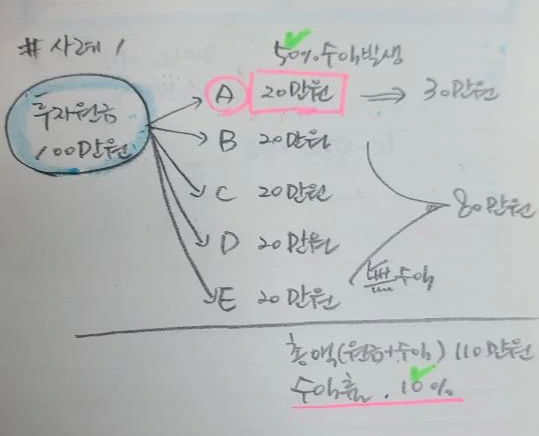 # 사례 1
50% 수익발생
투자원금
100만원
A 20만원 ⇒ 30만원
B 20만원
C 20만원
80만원
D 20만원
수익
E 20만원
총액(원금+수익) 110만원
수익률 . 10%